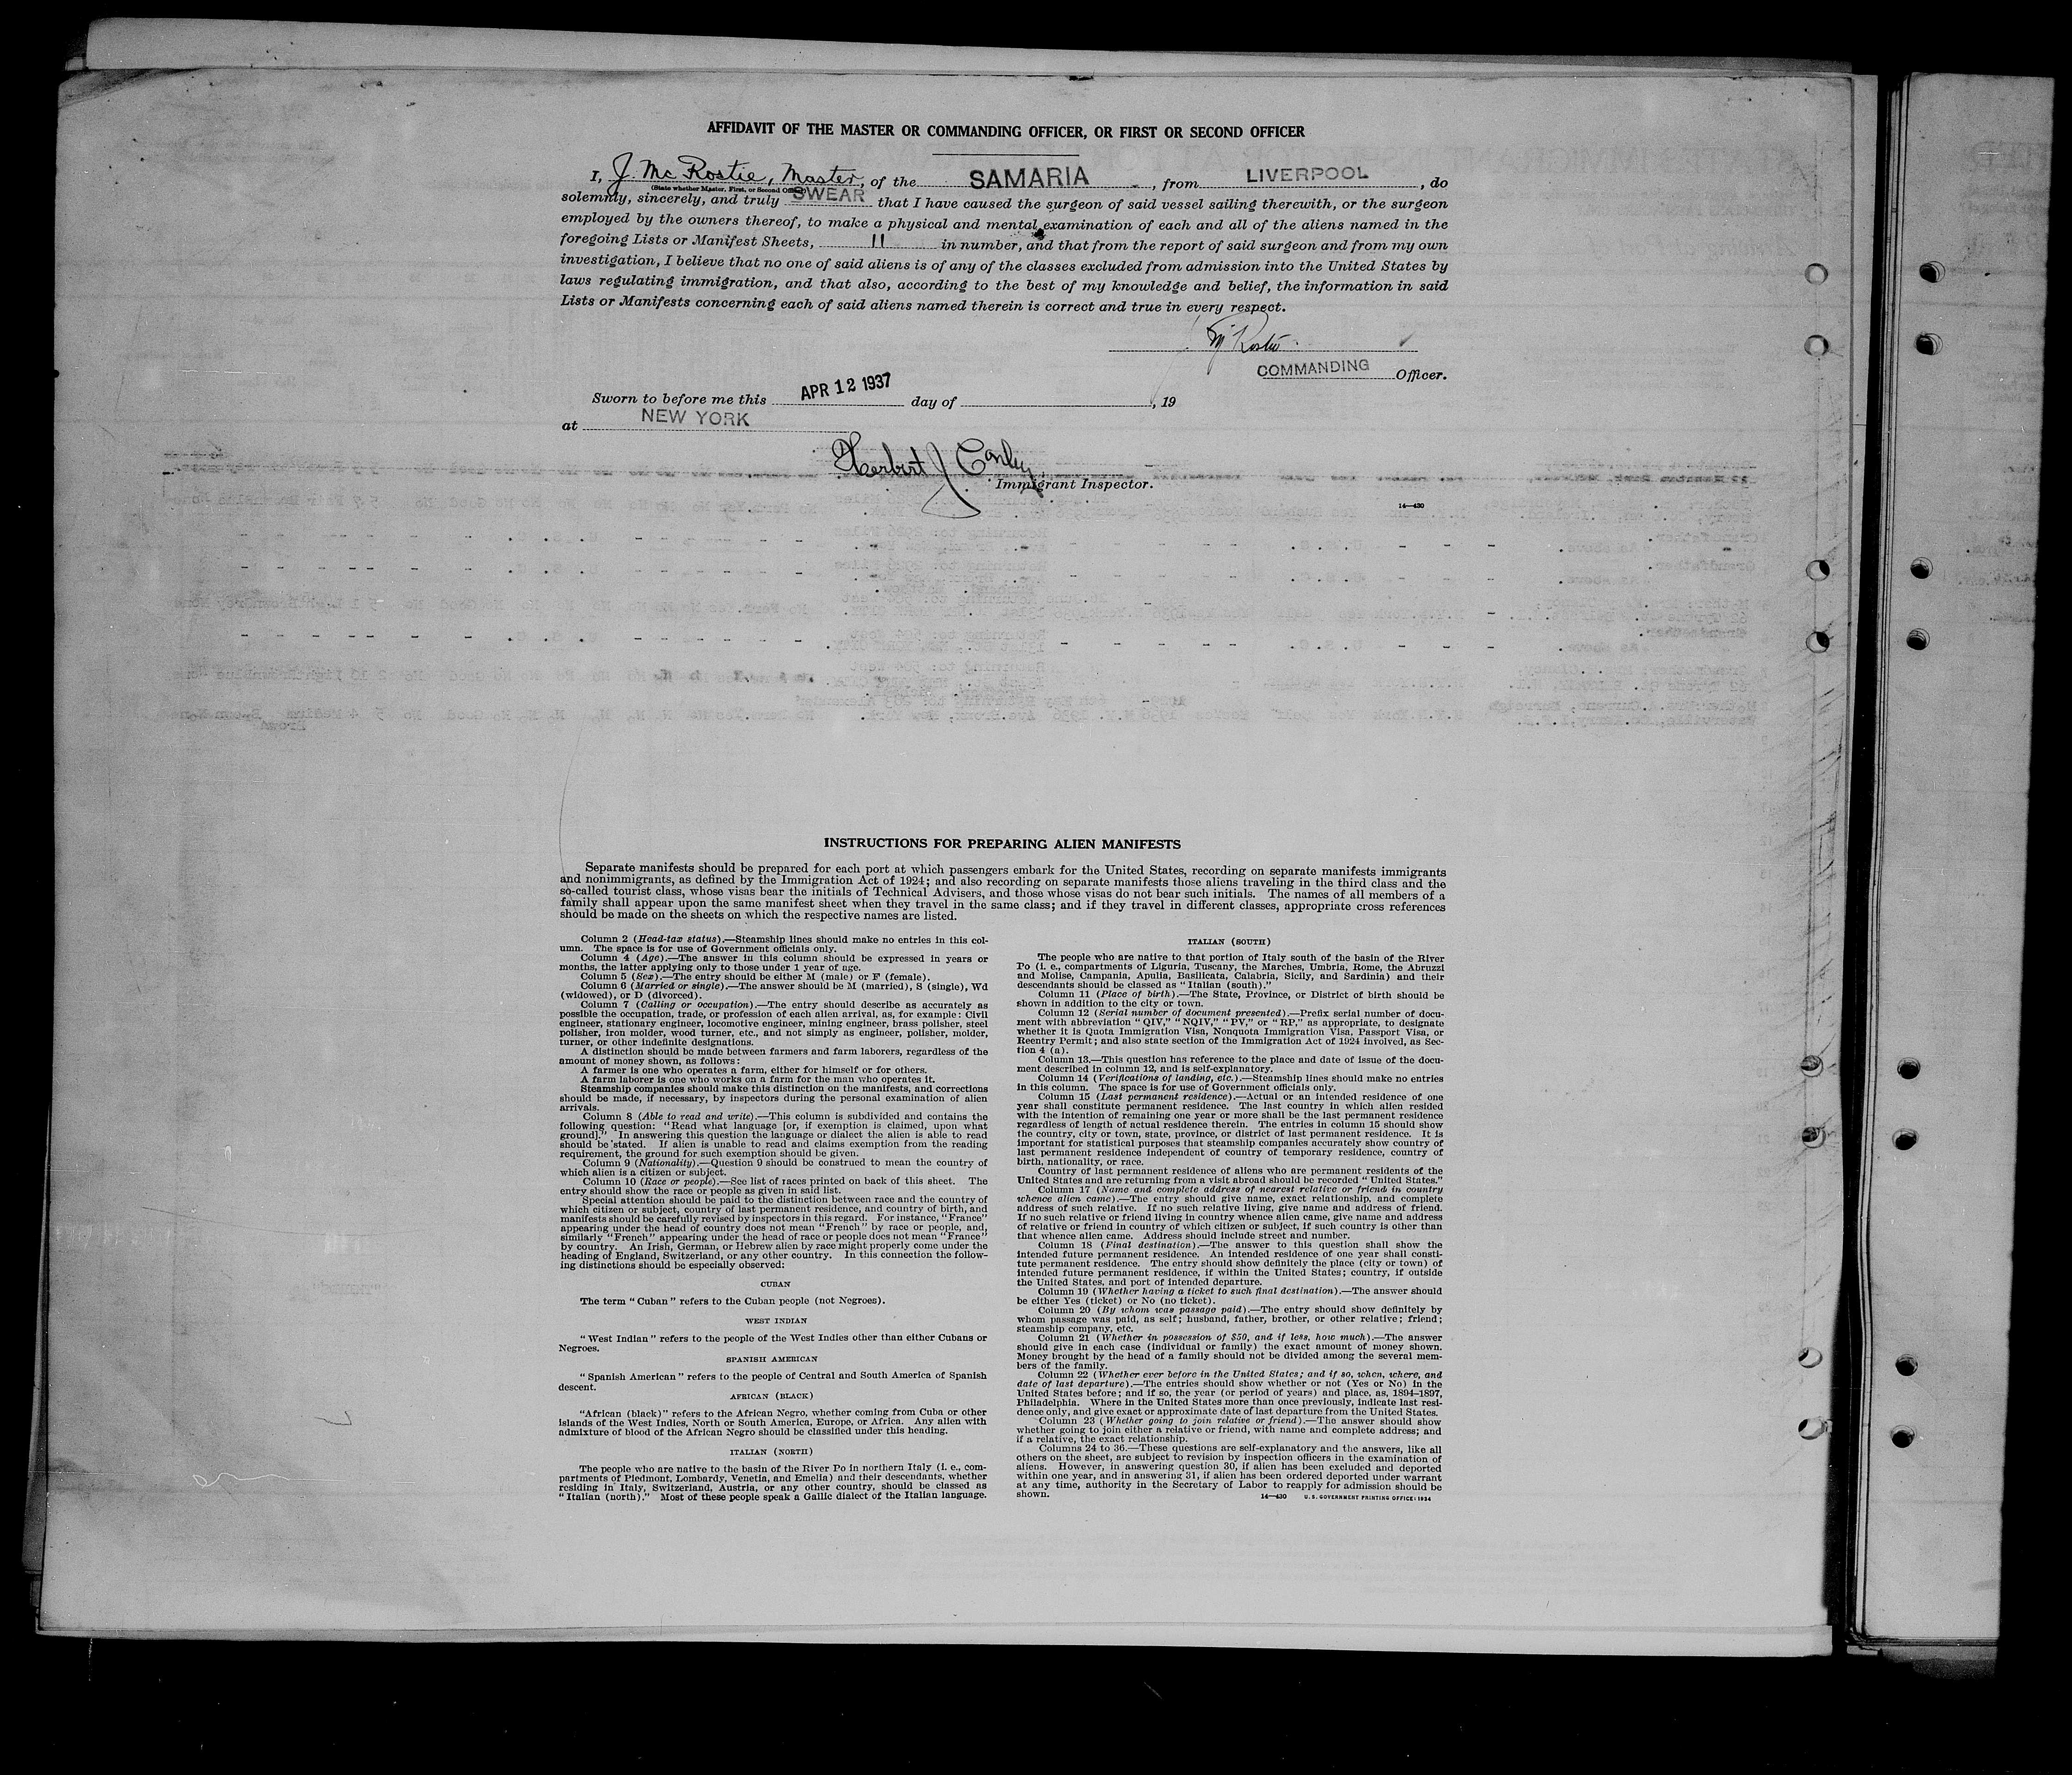 AFFIDAVIT OF THE MASTER OR COMMANDING OFFICER, OR FIRST OR SECOND OFFICER
I, J. Mc Rostie, Master, of the SAMARIA, from LIVERPOOL, do
(State whether Master, First, or Second Officer)
solemnly, sincerely, and truly SWEAR that I have caused the surgeon of said vessel sailing therewith, or the surgeon
employed by the owners thereof, to make a physical and mental examination of each and all of the aliens named in the
foregoing Lists or Manifest Sheets, 11 in number, and that from the report of said surgeon and from my own
investigation, I believe that no one of said aliens is of any of the classes excluded from admission into the United States by
laws regulating immigration, and that also, according to the best of my knowledge and belief, the information in said
Lists or Manifests concerning each of said aliens named therein is correct and true in every respect.
COMMANDING Officer.
Sworn to before me this APR 12 1937 day of , 19
at NEW YORK
Herbert J Conley
Immigrant Inspector.
14—430
INSTRUCTIONS FOR PREPARING ALIEN MANIFESTS
Separate manifests should be prepared for each port at which passengers embark for the United States, recording on separate manifests immigrants
and nonimmigrants, as defined by the Immigration Act of 1924; and also recording on separate manifests those aliens traveling in the third class and the
so-called tourist class, whose visas bear the initials of Technical Advisers, and those whose visas do not bear such initials. The names of all members of a
family shall appear upon the same manifest sheet when they travel in the same class; and if they travel in different classes, appropriate cross references
should be made on the sheets on which the respective names are listed.
Column 2 (Head-tax status).—Steamship lines should make no entries in this col-
umn. The space is for use of Government officials only.
Column 4 (Age).—The answer in this column should be expressed in years or
months, the latter applying only to those under 1 year of age.
Column 5 (Sex).—The entry should be either M (male) or F (female).
Column 6 (Married or single).—The answer should be M (married), S (single), Wd
(widowed), or D (divorced).
Column 7 (Calling or occupation).—The entry should describe as accurately as
possible the occupation, trade, or profession of each alien arrival, as, for example: Civil
engineer, stationary engineer, locomotive engineer, mining engineer, brass polisher, steel
polisher, iron molder, wood turner, etc., and not simply as engineer, polisher, molder,
turner, or other indefinite designations.
A distinction should be made between farmers and farm laborers, regardless of the
amount of money shown, as follows:
A farmer is one who operates a farm, either for himself or for others.
A farm laborer is one who works on a farm for the man who operates it.
Steamship companies should make this distinction on the manifests, and corrections
should be made, if necessary, by inspectors during the personal examination of alien
arrivals.
Column 8 (Able to read and write).—This column is subdivided and contains the
following question: "Read what language [or, if exemption is claimed, upon what
ground]." In answering this question the language or dialect the alien is able to read
should be stated. If alien is unable to read and claims exemption from the reading
requirement, the ground for such exemption should be given.
Column 9 (Nationality).—Question 9 should be construed to mean the country of
which alien is a citizen or subject.
Column 10 (Race or people).—See list of races printed on back of this sheet. The
entry should show the race or people as given in said list.
Special attention should be paid to the distinction between race and the country of
which citizen or subject, country of last permanent residence, and country of birth, and
manifests should be carefully revised by inspectors in this regard. For instance, "France"
appearing under the head of country does not mean "French" by race or people, and,
similarly "French" appearing under the head of race or people does not mean "France"
by country. An Irish, German, or Hebrew alien by race might properly come under the
heading of England, Switzerland, or any other country. In this connection the follow-
ing distinctions should be especially observed:
CUBAN
The term "Cuban" refers to the Cuban people (not Negroes).
WEST INDIAN
"West Indian" refers to the people of the West Indies other than either Cubans or
Negroes.
SPANISH AMERICAN
"Spanish American" refers to the people of Central and South America of Spanish
descent.
AFRICAN (BLACK)
"African (black)" refers to the African Negro, whether coming from Cuba or other
islands of the West Indies, North or South America, Europe, or Africa. Any alien with
admixture of blood of the African Negro should be classified under this heading.
ITALIAN (NORTH)
The people who are native to the basin of the River Po in northern Italy (i. e., com-
partments of Piedmont, Lombardy, Venetia, and Emelia) and their descendants, whether
residing in Italy, Switzerland, Austria, or any other country, should be classed as
"Italian (north)." Most of these people speak a Gallic dialect of the Italian language.
ITALIAN (SOUTH)
The people who are native to that portion of Italy south of the basin of the River
Po (i. e., compartments of Liguria, Tuscany, the Marches, Umbria, Rome, the Abruzzi
and Molise, Campania, Apulia, Basilicata, Calabria, Sicily, and Sardinia) and their
descendants should be classed as "Italian (south)."
Column 11 (Place of birth).—The State, Province, or District of birth should be
shown in addition to the city or town.
Column 12 (Serial number of document presented).—Prefix serial number of docu-
ment with abbreviation "QIV," "NQIV," "PV," or "RP," as appropriate, to designate
whether it is Quota Immigration Visa, Nonquota Immigration Visa, Passport Visa, or
Reentry Permit; and also state section of the Immigration Act of 1924 involved, as Sec-
tion 4 (a).
Column 13.—This question has reference to the place and date of issue of the docu-
ment described in column 12, and is self-explanatory.
Column 14 (Verifications of landing, etc.).—Steamship lines should make no entries
in this column. The space is for use of Government officials only.
Column 15 (Last permanent residence).—Actual or an intended residence of one
year shall constitute permanent residence. The last country in which alien resided
with the intention of remaining one year or more shall be the last permanent residence
regardless of length of actual residence therein. The entries in column 15 should show
the country, city or town, state, province, or district of last permanent residence. It is
important for statistical purposes that steamship companies accurately show country of
last permanent residence independent of country of temporary residence, country of
birth, nationality, or race.
Country of last permanent residence of aliens who are permanent residents of the
United States and are returning from a visit abroad should be recorded "United States."
Column 17 (Name and complete address of nearest relative or friend in country
whence alien came).—The entry should give name, exact relationship, and complete
address of such relative. If no such relative living, give name and address of friend.
If no such relative or friend living in country whence alien came, give name and address
of relative or friend in country of which citizen or subject, if such country is other than
that whence alien came. Address should include street and number.
Column 18 (Final destination).—The answer to this question shall show the
intended future permanent residence. An intended residence of one year shall consti-
tute permanent residence. The entry should show definitely the place (city or town) of
intended future permanent residence, if within the United States; country, if outside
the United States, and port of intended departure.
Column 19 (Whether having a ticket to such final destination).—The answer should
be either Yes (ticket) or No (no ticket).
Column 20 (By whom was passage paid).—The entry should show definitely by
whom passage was paid, as self; husband, father, brother, or other relative; friend;
steamship company, etc.
Column 21 (Whether in possession of $50, and if less, how much).—The answer
should give in each case (individual or family) the exact amount of money shown.
Money brought by the head of a family should not be divided among the several mem-
bers of the family.
Column 22 (Whether ever before in the United States; and if so, when, where, and
date of last departure).—The entries should show whether or not (Yes or No) in the
United States before; and if so, the year (or period of years) and place, as, 1894–1897,
Philadelphia. Where in the United States more than once previously, indicate last resi-
dence only, and give exact or approximate date of last departure from the United States.
Column 23 (Whether going to join relative or friend).—The answer should show
whether going to join either a relative or friend, with name and complete address; and
if a relative, the exact relationship.
Columns 24 to 36.—These questions are self-explanatory and the answers, like all
others on the sheet, are subject to revision by inspection officers in the examination of
aliens. However, in answering question 30, if alien has been excluded and deported
within one year, and in answering 31, if alien has been ordered deported under warrant
at any time, authority in the Secretary of Labor to reapply for admission should be
shown.
14—430 U. S. GOVERNMENT PRINTING OFFICE: 1934